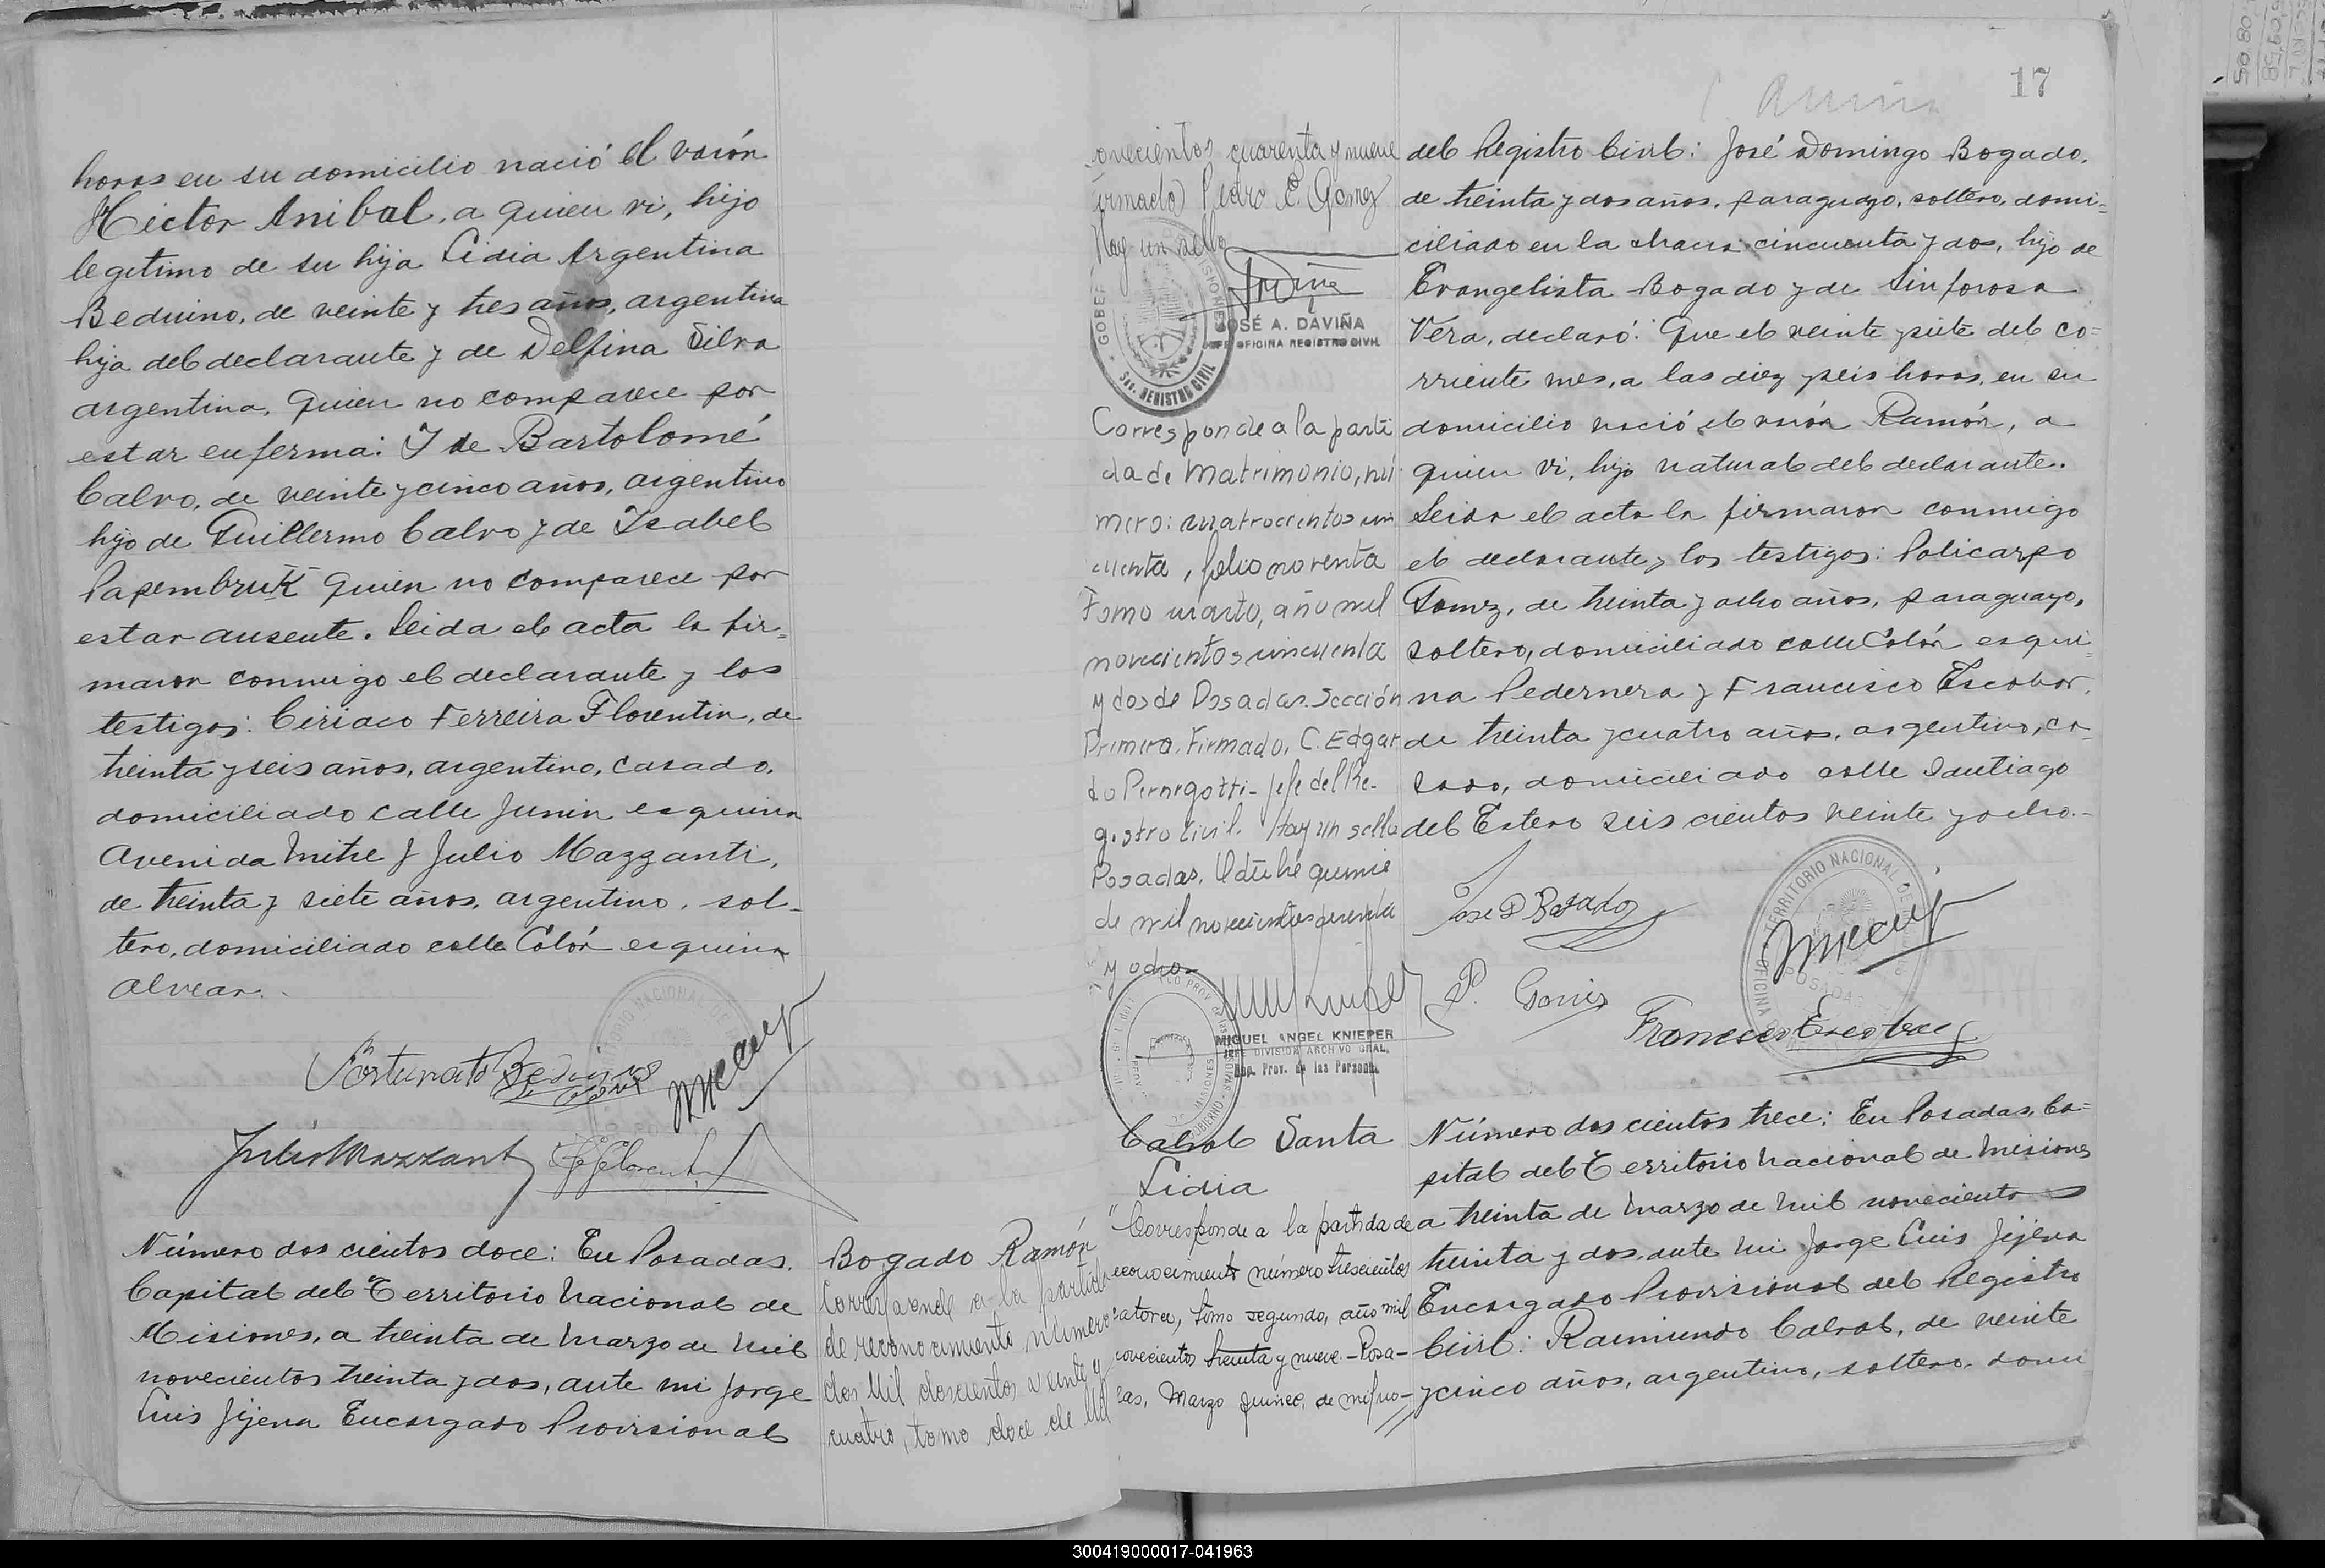 horas en su domicilio nació el varón
Héctor Anibal, a quien vi, hijo
legitimo de su hija Lidia Argentina
Beduino, de veinte y tres años, argentina
hija del declarante y de Delfina Silva
argentina, quien no comparece por
estar enferma: Y de Bartolomé
Calvo, de veinte y cinco años, argentino
hijo de Guillermo Calvo y de Isabel
Papembruk quien no comparece por
estar ausente. Leida el acta la fir=
maron conmigo el declarante y los
testigos: Ciriaco Ferreira Florentin, de
treinta y seis años, argentino, casado,
domiciliado calle Junin esquina
Avenida Mitre y Julio Mazzanti,
de treinta y siete años, argentino, sol-
tero, domiciliado calle Colón esquina
Alvear.
Fortunato Beduino
Julio Mazzanti
Número dos cientos doce: En Posadas,
Capital del Territorio Nacional de
Misiones, a treinta de Marzo de Mil
novecientos treinta y dos, ante mi Jorge
Luis Jijena Encargado Provisional
Bogado Ramón
Corresponde a la partida
de reconocimiento número
dos Mil doscientos veinte y
cuatro, tomo doce de Mil
17
ovecientos cuarenta y nueve
irmado) Pedro E. Gomez
Hay un sello
JOSÉ A. DAVIÑA
JEFE OFICINA REGISTRO CIVIL
Corresponde a la parti
da de Matrimonio, nú
mero: cuatrocientos cin
cuenta, folio noventa
Tomo cuarto, año mil
novecientos cincuenta
y dos de Posadas. Sección
Primera. Firmado, C. Edgar
do Pernigotti - Jefe del Re-
gistro Civil. Hay un sello
Posadas, Octubre quince
de mil novecientos sesenta
y ocho-
MIGUEL ANGEL KNIEPER
JEFE DIVISION ARCHIVO GRAL.
Rep. Prov. de las Personas
del Registro Civil: José Domingo Bogado,
de treinta y dos años, paraguayo, soltero, domi=
ciliado en la chacra cincuenta y dos, hijo de
Evangelista Bogado y de Sinforosa
Vera, declaró: Que el veinte y siete del co=
rriente mes, a las diez y seis horas, en su
domicilio nació el varón Ramón, a
quien vi, hijo natural del declarante.
Leida el acta la firmaron conmigo
el declarante y los testigos: Policarpo
Gomez, de treinta y ocho años, paraguayo,
soltero, domiciliado calle Colón esqui=
na Pedernera y Francisco Escobar,
de treinta y cuatro años, argentino, ca-
sado, domiciliado calle Santiago
del Estero seis cientos veinte y ocho.-
Jose D Bogado
P. Gomez
Francisco Escobar
Cabral Santa
Lidia
"Corresponde a la partida de
econocimiento número trescientos
catorce, tomo segundo, año mil
novecientos treinta y nueve.-Posa-
das, Marzo quince, de mil no-
Número dos cientos trece: En Posadas, Ca=
pital del Territorio Nacional de Misiones
a treinta de Marzo de Mil novecientos
treinta y dos, ante mi Jorge Luis Jijena
Encargado Provisional del Registro
Civil: Raimundo Cabral, de veinte
y cinco años, argentino, soltero, domi
300419000017-041963